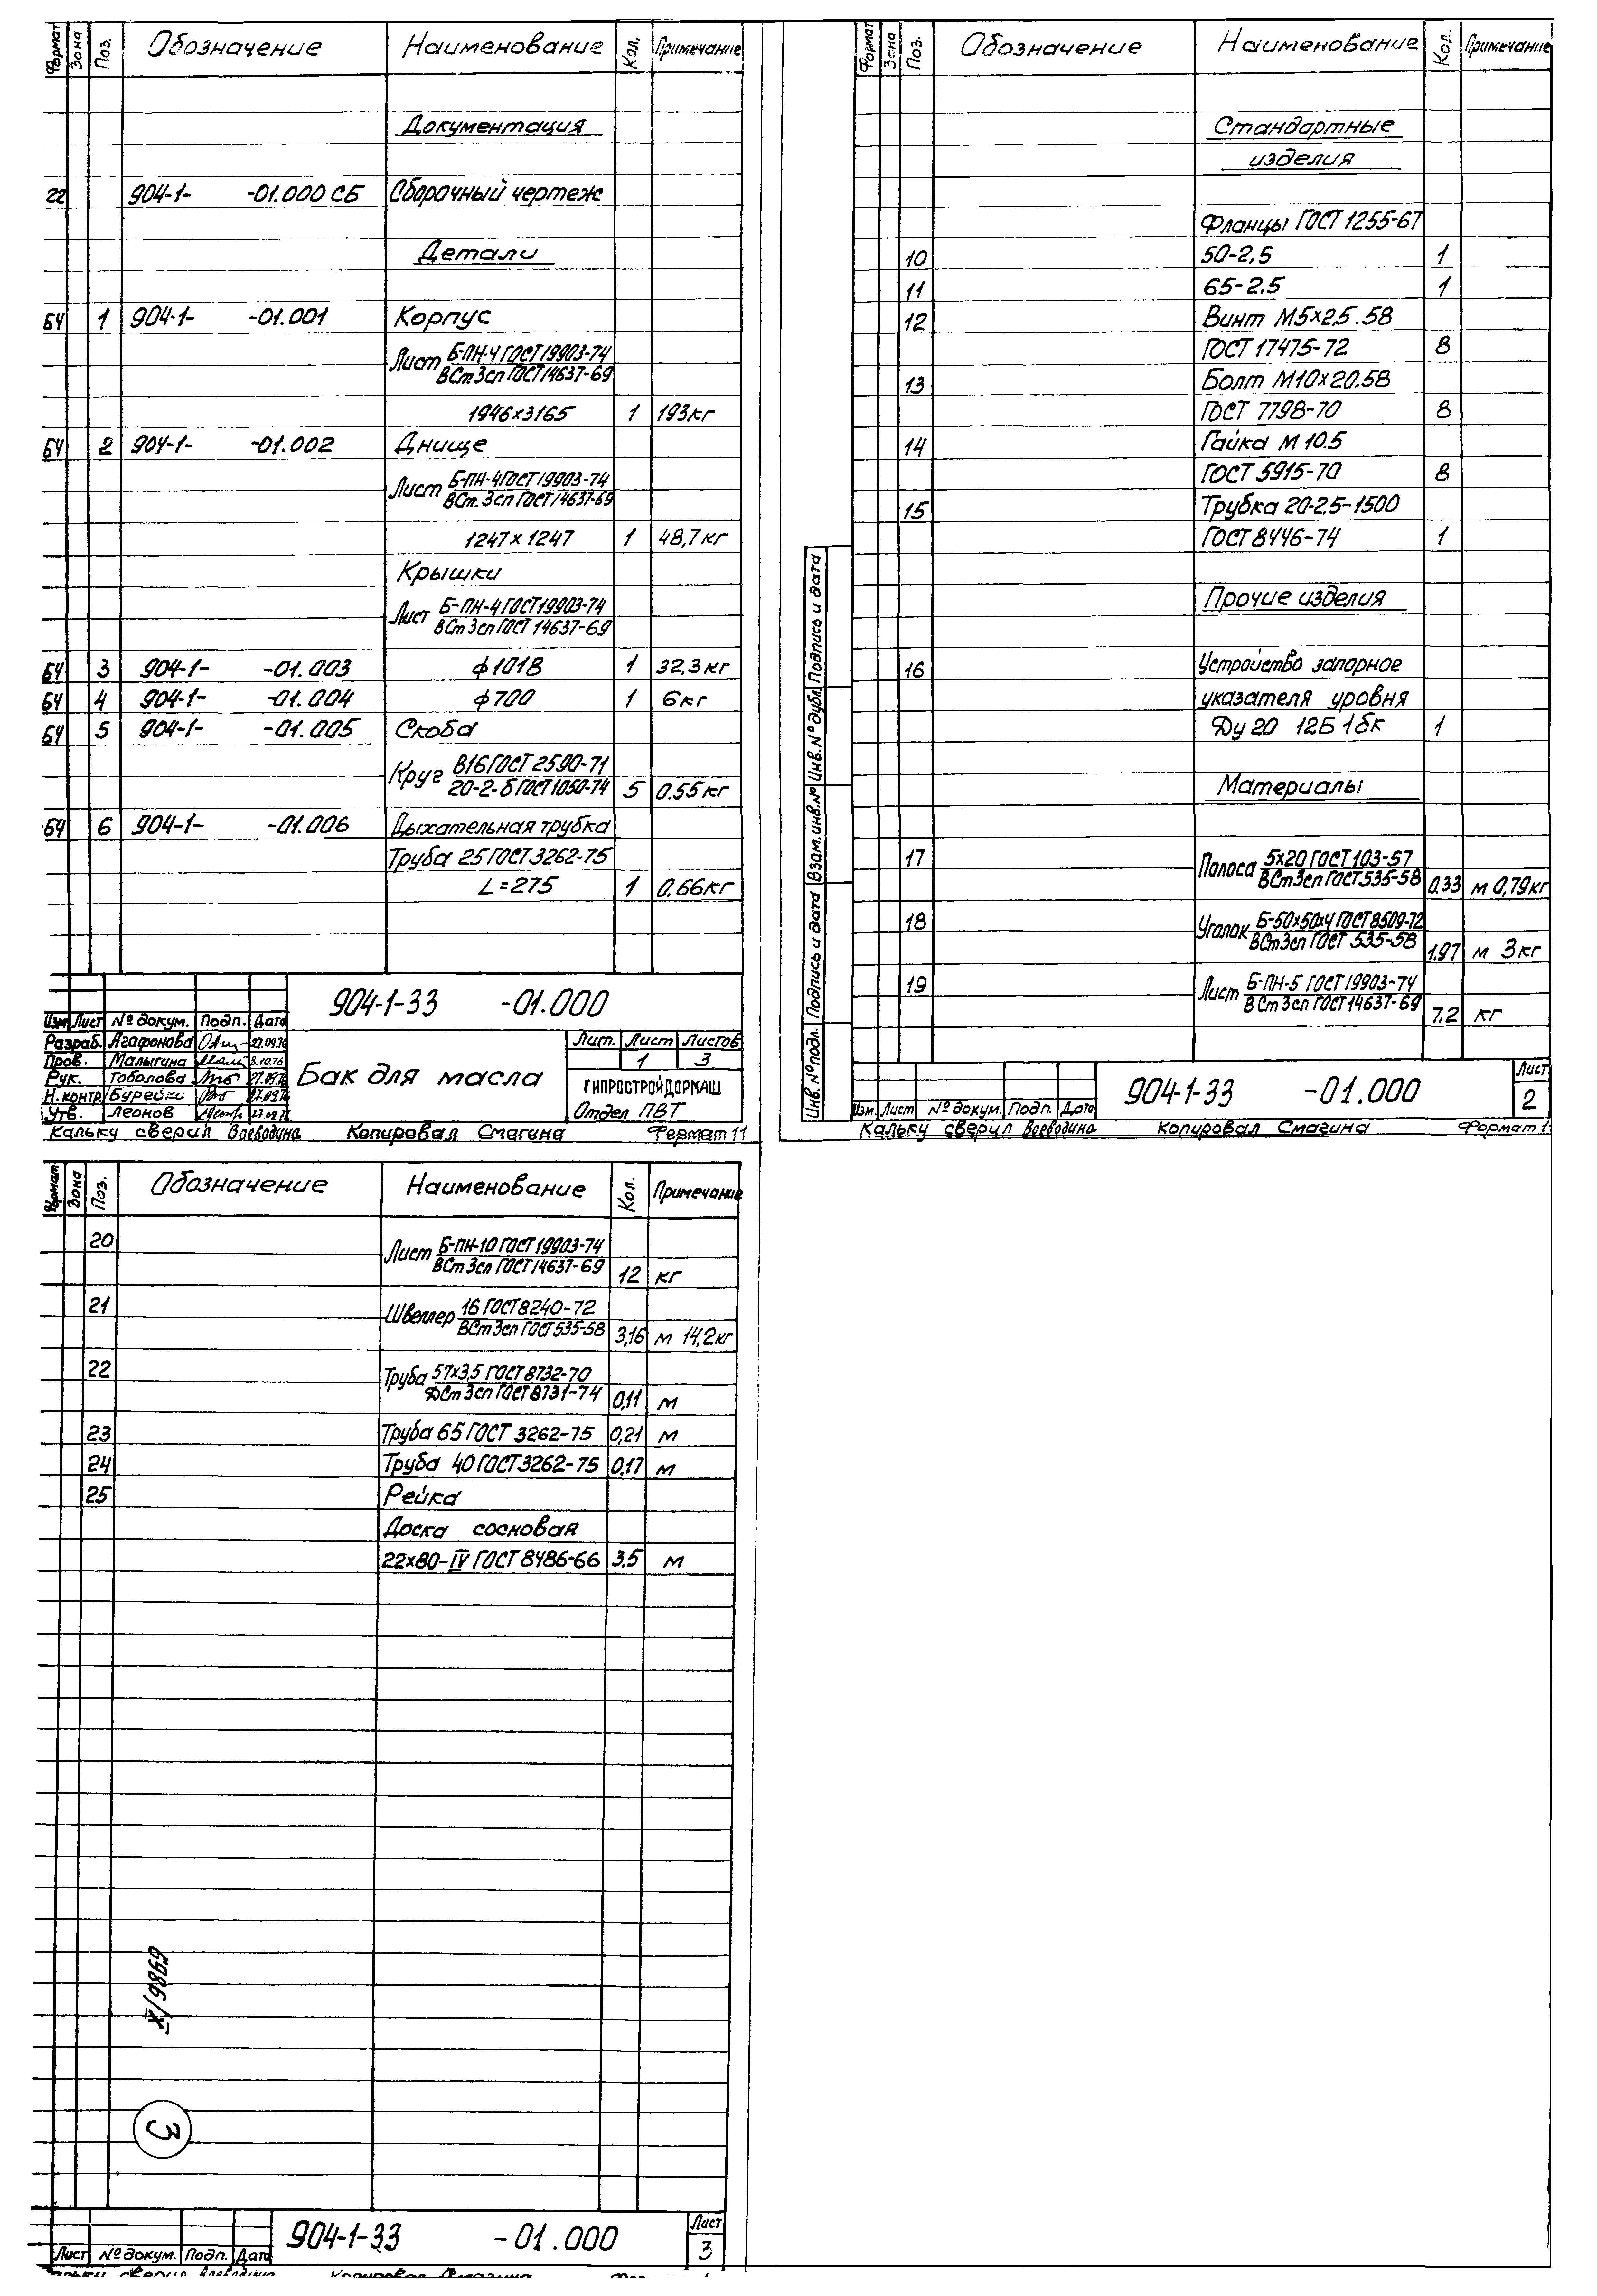 Формат Зона Поз. Обозначение Наименование Кол. Примечание
Документация
22 904-1- -01.000 СБ Сборочный чертеж
Детали
БЧ 1 904-1- -01.001 Корпус
Лист Б-ПН-4 ГОСТ 19903-74
ВСт3сп ГОСТ 14637-69
1946х3165 1 193кг
БЧ 2 904-1- -01.002 Днище
Лист Б-ПН-4 ГОСТ 19903-74
ВСт.3сп ГОСТ 14637-69
1247х1247 1 48,7кг
Крышки
Лист Б-ПН-4 ГОСТ 19903-74
ВСт3сп ГОСТ 14637-69
БЧ 3 904-1- -01.003 ф1018 1 32.3кг
БЧ 4 904-1- -01.004 ф700 1 6кг
БЧ 5 904-1- -01.005 Скоба
Круг В16 ГОСТ 2590-71
20-2-б ГОСТ 1050-74 5 0.55кг
БЧ 6 904-1- -01.006 Дыхательная трубка
Труба 25 ГОСТ 3262-75
L=275 1 0,66кг
904-1-33 -01.000
Изм Лист № докум. Подп. Дата
Разраб. Агафонова 27.09.76
Пров. Малыгина 8.10.76
Рук. Тоболова 27.09.76
Н.контр. Бурейко 27.09.76
Утв. Леонов
Бак для масла
Лит. Лист Листов
1 3
ГИПРОСТРОЙДОРМАШ
Отдел ПВТ
Кальку сверил Воеводина Копировал Смагина Формат 11
Формат Зона Поз. Обозначение Наименование Кол. Примечание
Стандартные
изделия
Фланцы ГОСТ 1255-67
10 50-2,5 1
11 65-2.5 1
12 Винт М5х25.58
ГОСТ 17475-72 8
13 Болт М10х20.58
ГОСТ 7798-70 8
14 Гайка М10.5
ГОСТ 5915-70 8
15 Трубка 20-2.5-1500
ГОСТ 8446-74 1
Прочие изделия
16 Устройство запорное
указателя уровня
Ду 20 12Б1бк 1
Материалы
17 Полоса 5х20 ГОСТ 103-57
ВСт3сп ГОСТ 535-58 0.33 м 0,79кг
18 Уголок Б-50х50х4 ГОСТ 8509-72
ВСт3сп ГОСТ 535-58 1.97 м 3кг
19 Лист Б-ПН-5 ГОСТ 19903-74
ВСт3сп ГОСТ 14637-69 7.2 кг
Инв.№ подл. Подпись и дата Взам.инв.№ Инв.№ дубл. Подпись и дата
904-1-33 -01.000
Лист
2
Изм. Лист № докум. Подп. Дата
Кальку сверил Воеводина Копировал Смагина Формат 1
Формат Зона Поз. Обозначение Наименование Кол. Примечание
20 Лист Б-ПН-10 ГОСТ 19903-74
ВСт3сп ГОСТ 14637-69 12 кг
21 Швеллер 16 ГОСТ 8240-72
ВСт3сп ГОСТ 535-58 3,16 м 14,2кг
22 Труба 57х3,5 ГОСТ 8732-70
ДСт3сп ГОСТ 8731-74 0,11 м
23 Труба 65 ГОСТ 3262-75 0,21 м
24 Труба 40 ГОСТ 3262-75 0,17 м
25 Рейка
Доска сосновая
22х80-IV ГОСТ 8486-66 3.5 м
6986/X
3
904-1-33 -01.000
Лист
3
Лист № докум. Подп. Дата